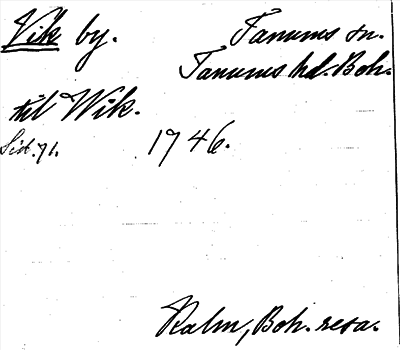 Vik by. Tanums sn.
Tanums hd. Boh.
till Wik.
Sid. 71. 1746.
Kalm, Boh. resa.